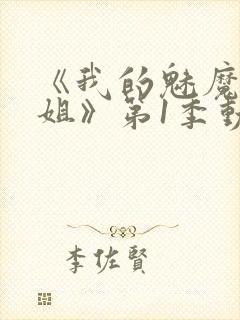 《我的魅魔
姐》第1季動
李佐賢